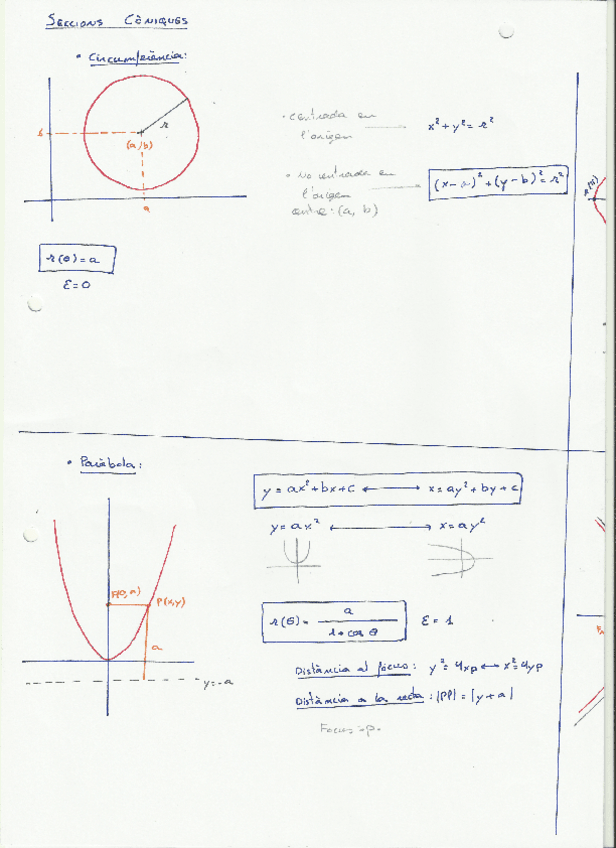 SECCIONS CÒNIQUES
• Circumferència:
r
b
(a,b)
a
• centrada en
l'origen
x² + y² = r²
• No centrada en
l'origen
centre: (a, b)
(x-a)² + (y-b)² = r²
r(θ) = a
Ɛ = 0
• Paràbola:
y = ax² + bx + c ⟷ x = ay² + by + c
y = ax² ⟷ x = ay²
F(0,a)
P(x,y)
a
y = -a
r(θ) = a / 1 + cos θ
Ɛ = 1
Distància al focus: y² = 4xp ⟷ x² = 4yp
Distància a la recta: |PP| = |y + a|
Focus = p.